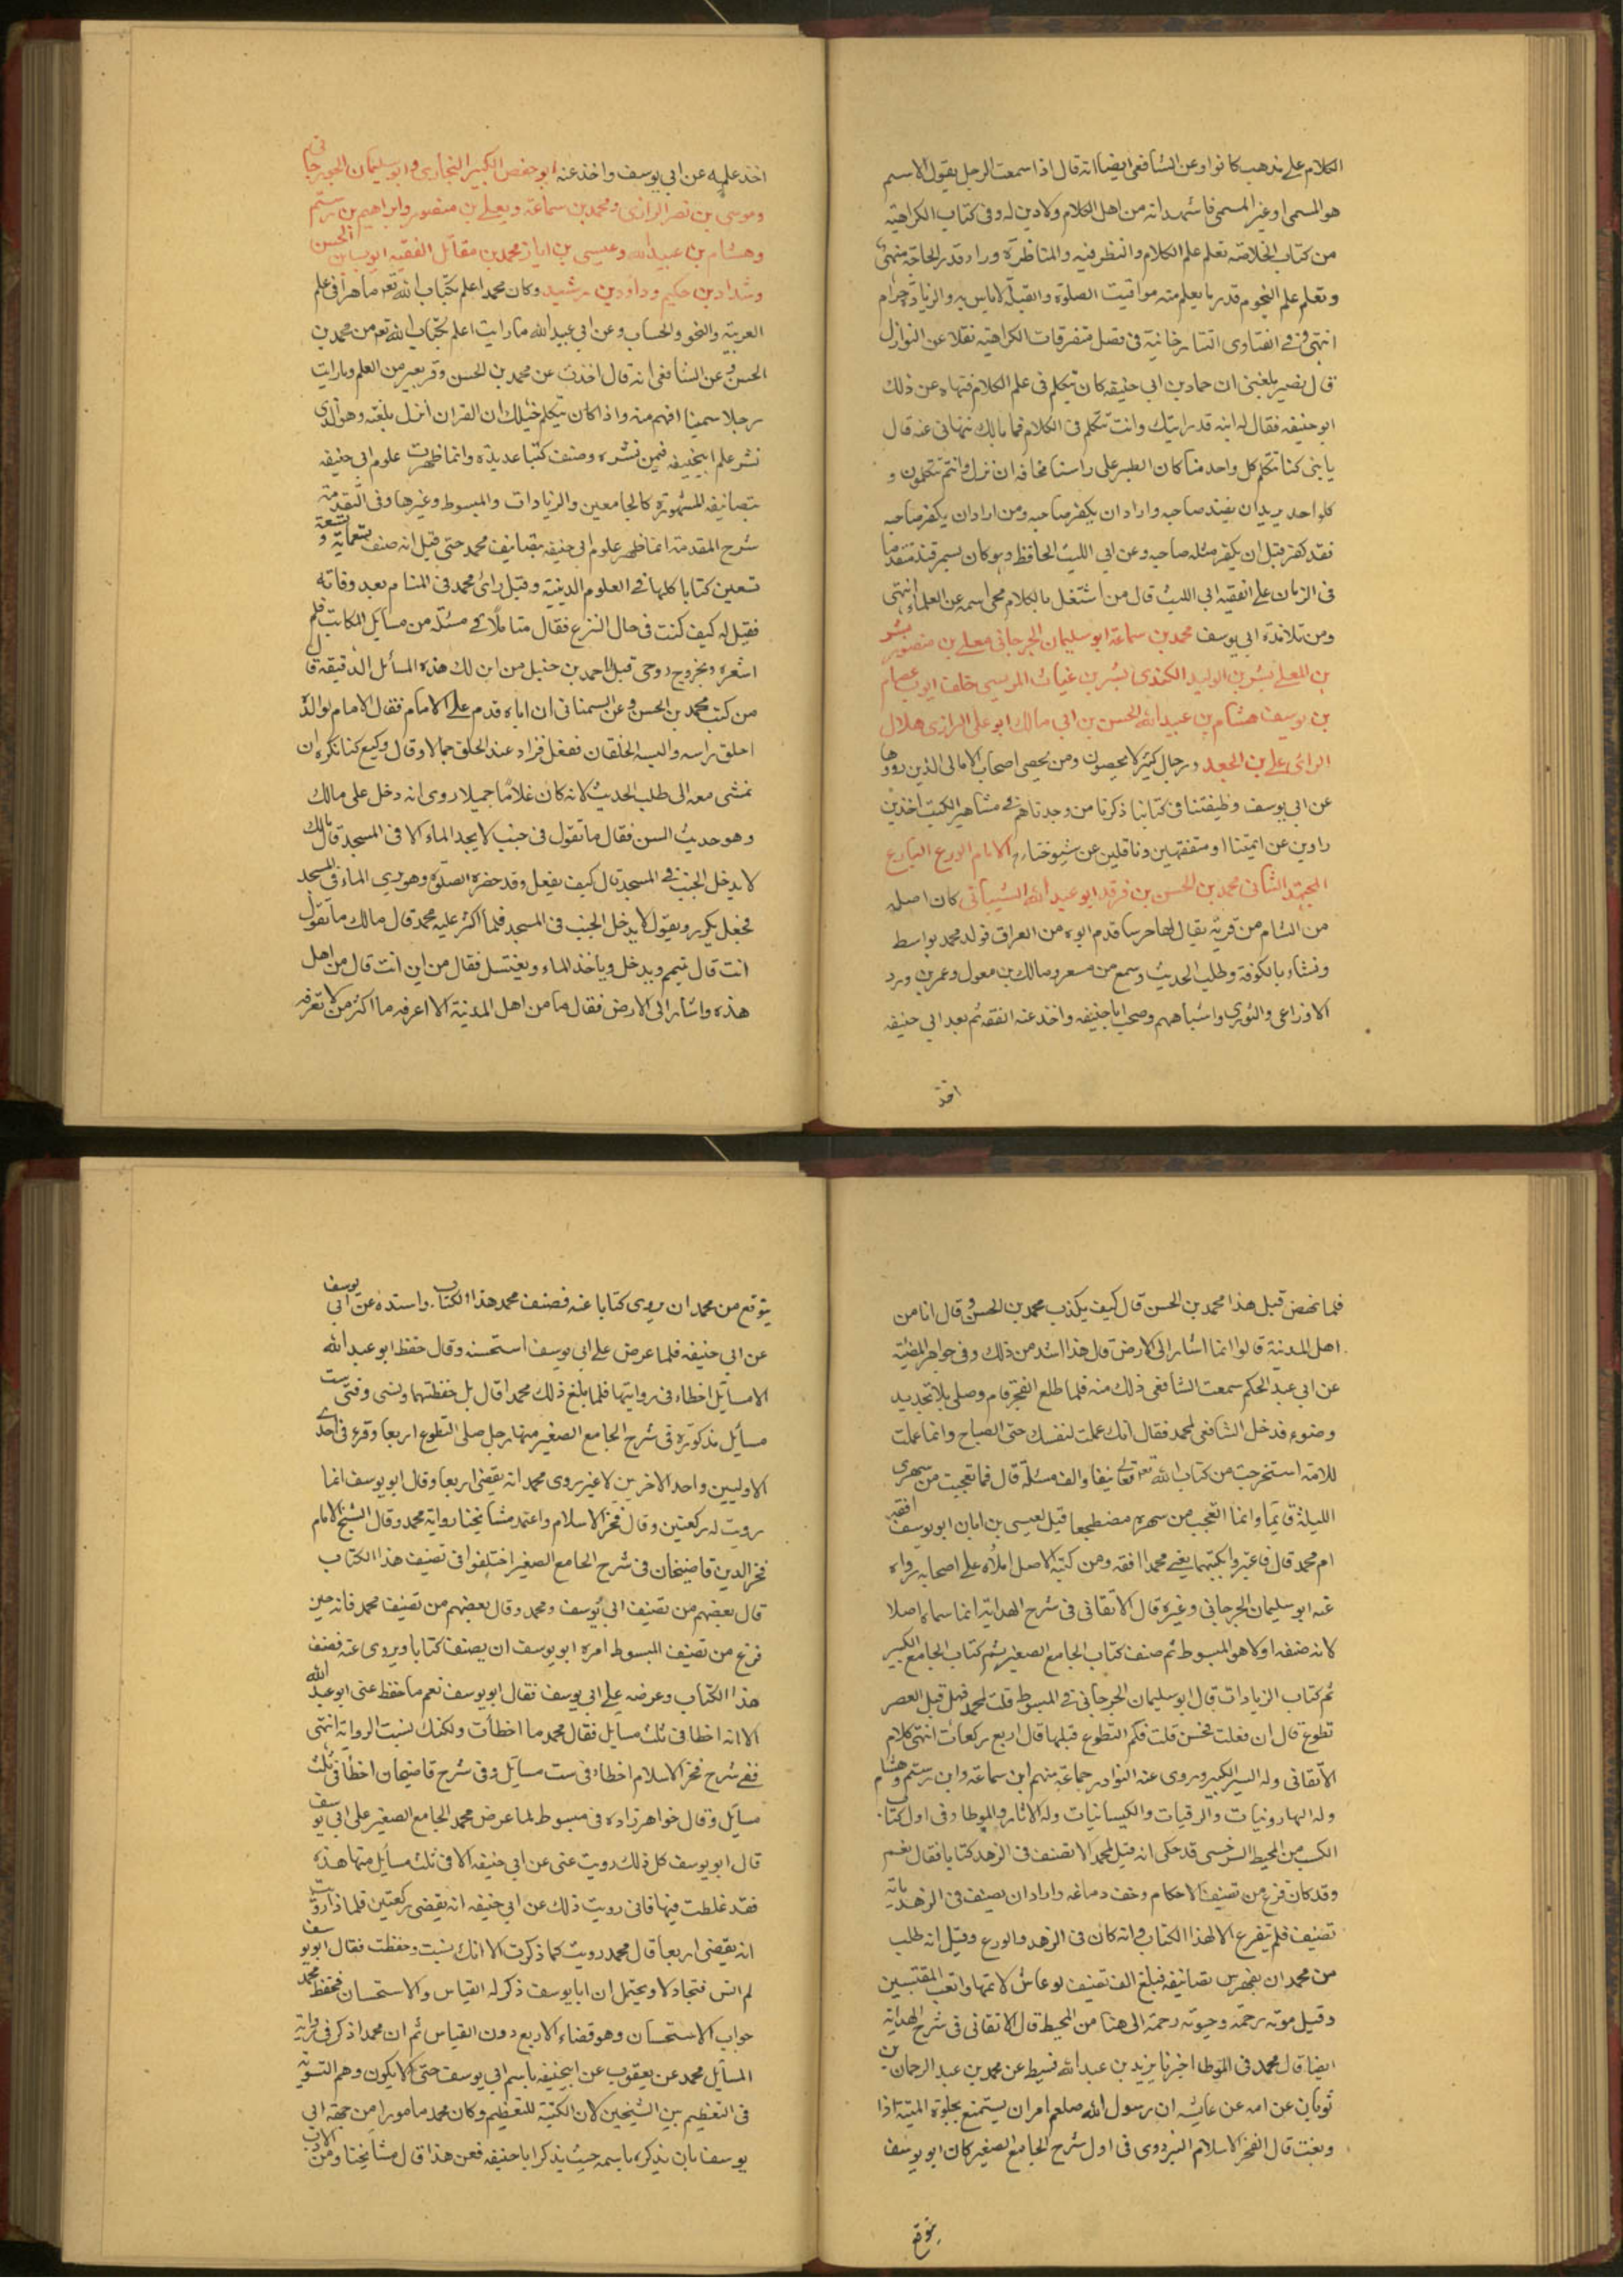 الكلام على مذهب كانوا وعن الشافعى ايضا انه قال اذا سمعت الرجل يقول الاسم
هو المسمى او غير المسمى فاشهد انه من اهل الكلام ولا دين له وفى كتاب الكراهية
من كتاب الخلاصة تعلم علم الكلام والنظر فيه والمناظرة وراء قدر الحاجة منهى
وتعلم علم النجوم قدر ما يعلم منه مواقيت الصلوة والقبلة لا باس به والزيادة حرام
انتهى وفى الفتاوى التتارخانية فى فصل متفرقات الكراهية نقلا عن النوازل
قال نصير بلغنى ان حماد بن ابى حنيفه كان يتكلم فى علم الكلام فنهاه عن ذلك
ابو حنيفه فقال له ابنه قد رايتك وانت تتكلم فى الكلام فما بالك تنهانى عنه قال
يا بنى كنا نتكلم كل واحد منا كان الطير على راسنا مخافة ان نزل وانتم تتكلمون و
كل واحد يريد ان يفتد صاحبه واراد ان يكفر صاحبه ومن اراد ان يكفر صاحبه
فقد كفر قبل ان يكفر مثله صاحبه وعن ابى الليث الحافظ وهو كان بسمرقند متقدما
فى الزمان على الفقيه ابى الليث قال من اشتغل بالكلام محى اسمه عن العلماء انتهى
ومن تلامذة ابى يوسف محمد بن سماعة ابو سليمان الجرجانى معلى بن منصور بشر
بن المعلى بشر بن الوليد الكندى بشر بن غياث المريسى خلف ايوب عصام
بن يوسف هشام بن عبيد الله الحسن بن ابى مالك ابو على الرازى هلال
الرائى على بن الجعد ورجال كثير لا يحصون ومن يحصى اصحاب الامالى الذين رووها
عن ابى يوسف وظيفتنا فى كتابنا ذكرنا من وجدناهم فى مشاهير الكتب اخذين
راوين عن ائمتنا او متفقهين وناقلين عن شيوخنا الامام الورع البارع
المجتهد الشانى محمد بن الحسن بن فرقد ابو عبد الله الشيبانى كان اصله
من الشام من قرية يقال لها حرستا قدم ابوه من العراق فولد محمد بواسط
ونشاء بالكوفة وطلب الحديث وسمع من مسعر ومالك بن معول وعمر بن
الاوزاعى والثورى واشباههم وصحب ابا حنيفه واخذ عنه الفقه ثم بعد ابى حنيفه
اخذ
اخذ علمه عن ابى يوسف واخذ عنه ابو حفص الكبير البخارى وابو سليمان الجوزجانى
وموسى بن نصر الرازى ومحمد بن سماعة ومعلى بن منصور وابراهيم بن رستم
وهشام بن عبيد الله وعيسى بن ابان ومحمد بن مقاتل الفقيه
وشداد بن حكيم وداود بن رشيد وكان محمد اعلم بكتاب الله تعم ماهرا فى علم
العربية والنحو والحساب وعن ابى عبيد الله ما رايت اعلم بكتاب الله تعم من محمد بن
الحسن وعن الشافعى انه قال اخذت عن محمد بن الحسن وقر بعير من العلم وما رايت
رجلا سمينا افهم منه واذا كان يتكلم خيل لك ان القران انزل بلغته وهو الذى
نشر علم ابيحنيفه فيمن نشره وصنف كتبا عديدة وانما ظهرت علوم ابى حنيفه
بتصانيفه المشهورة كالجامعين والزيادات والمبسوط وغيرها وفى التقدمة
شرح المقدمة انما ظهر علوم ابى حنيفه بتصانيف محمد حتى قيل انه صنف تسعمائة وتسعة
تسعين كتابا كلها فى العلوم الدينية وقيل رائ محمد فى المنام بعد وفاته
فقيل له كيف كنت فى حال النزع فقال متاملا فى مسئلة من مسايل المكاتب فلم
اشعر بخروج روحى قيل لاحمد بن حنبل من اين لك هذه المسائل الدقيقة قال
من كتب محمد بن الحسن وعن السمنانى ان اباه قدم على الامام فقال الامام لوالده
احلق راسه والبسه الخلقان ففعل فزاد عند الحلق جمالا وقال وكيع كنا نكره ان
نمشى معه الى طلب الحديث لانه كان غلاما جميلا روى انه دخل على مالك
وهو حديث السن فقال ما تقول فى جنب لا يجد الماء الا فى المسجد قال مالك
لا يدخل الجنب فى المسجد قال كيف يفعل وقد حضرت الصلوة وهو يرى الماء فى المسجد
فجعل يكرر ويقول لا يدخل الجنب فى المسجد فلما اكثر عليه محمد قال مالك ما تقول
انت قال يتيمم ويدخل وياخذ الماء ويغتسل فقال من اين انت قال من اهل
هذه واشار الى الارض فقال ما من اهل المدينة الا اعرفه ما اكثر من لا تعرفه
فلما نهض قيل هذا محمد بن الحسن قال كيف يكذب محمد بن الحسن وقال انا من
اهل المدينة قالوا انما اشار الى الارض قال هذا اشد من ذلك وفى جواهر المضيئة
عن ابى عبد الحكم سمعت الشافعى ذلك منه فلما طلع الفجر قام وصلى بلا تجديد
وضوء فدخل الشافعى لمحمد فقال انك عملت لنفسك حتى الصباح وانما عملت
للامة استخرجت من كتاب الله تعالى نيفا والف مسئلة قال فما تعجبت من سهرى
الليلة قايما وانما العجب من سهره مضطجعا قيل لعيسى بن ابان ابو يوسف افقه
ام محمد قال فاعتبروا بكتبهما يعنى محمدا افقه ومن كتبه الاصل املاه على اصحابه رواه
عنه ابو سليمان الجرجانى وغيره قال الاتقانى فى شرح الهداية انما سماه اصلا
لانه صنفه اولا هو المبسوط ثم صنف كتاب الجامع الصغير ثم كتاب الجامع الكبير
ثم كتاب الزيادات قال ابو سليمان الجرجانى فى المبسوط قلت لمحمد فهل قبل العصر
تطوع قال ان فعلت فحسن قلت فكم التطوع قبلها قال اربع ركعات انتهى كلام
الاتقانى وله السير الكبير ويروى عنه النوادر جماعة منهم ابن سماعة وابن رستم وهشام
وله الهارونيات والرقيات والكيسانيات وله الاثار والموطا وفى اول كتاب
الكسب من المحيط السرخسى قد حكى انه قيل لمحمد الا تصنف فى الزهد كتابا فقال نعم
وقد كان فرغ من تصنيف الاحكام وخف دماغه واراد ان يصنف فى الزهد
تصنيف فلم يتفرع الا لهذا الكتاب وانه كان فى الزهد والورع وقيل انه طلب
من محمد ان يفهرس تصانيفه فبلغ الف تصنيف لو عاش لاتمها واتعب المقتبسين
وقيل موته رحمة وحيوته رحمة الى هنا من المحيط قال الاتقانى فى شرح الهداية
ايضا قال محمد فى الموطا اخبرنا يزيد بن عبد الله قسيط عن محمد بن عبد الرحمان بن
ثوبان عن امه عن عايشه ان رسول الله صلعم امر ان يستمتع بجلود الميتة اذا
دبغت قال الفخر الاسلام البزدوى فى اول شرح الجامع الصغير كان ابو يوسف
يتوقع
يتوقع من محمد ان يروى كتابا عنه فصنف محمد هذا الكتاب واسنده عن ابى يوسف
عن ابى حنيفه فلما عرض على ابى يوسف استحسنه وقال حفظ ابو عبد الله
الا مسائل اخطاء فى روايتها فلما بلغ ذلك محمدا قال بل حفظتها ونسى وفى ست
مسائل مذكورة فى شرح الجامع الصغير منها رجل صلى التطوع اربعا وقرء فى احدى
الاوليين واحد الاخريين لا غير روى محمد انه يقضى اربعا وقال ابو يوسف انما
رويت له ركعتين وقال فخر الاسلام واعتمد مشايخنا رواية محمد وقال الشيخ الامام
فخر الدين قاضيخان فى شرح الجامع الصغير اختلفوا فى تصنيف هذا الكتاب
قال بعضهم من تصنيف ابى يوسف ومحمد وقال بعضهم من تصنيف محمد فانه حين
فرغ من تصنيف المبسوط امره ابو يوسف ان يصنف كتابا ويروى عنه فصنف
هذا الكتاب وعرضه على ابى يوسف فقال ابو يوسف نعم ما حفظ عنى ابو عبد الله
الا انه اخطا فى ثلث مسايل فقال محمد ما اخطأت ولكنك نسيت الرواية انتهى
ففى شرح فخر الاسلام اخطاء فى ست مسائل وفى شرح قاضيخان اخطأ فى ثلث
مسائل وقال خواهر زاده فى مبسوط لما عرض محمد الجامع الصغير على ابى يوسف
قال ابو يوسف كل ذلك رويت عنى عن ابى حنيفه الا فى ثلث مسايل منها هذه
فقد غلطت فيها فانى رويت ذلك عن ابى حنيفه انه يقضى ركعتين فلماذا رويت
انه يقضى اربعا قال محمد رويت كما ذكرت الا انك نسيت وحفظت فقال ابو يوسف
لم انس فتجادلا ويحتمل ان ابا يوسف ذكر له القياس والاستحسان فحفظ محمد
جواب الاستحسان وهو قضاء الاربع دون القياس ثم ان محمدا ذكر فى رواية
المسائل محمد عن يعقوب عن ابيحنيفه باسم ابى يوسف حتى لا يكون وهم التسوية
فى التعظيم بين الشيخين لان الكنية للتعظيم وكان محمد مامورا من جهة ابى
يوسف بان يذكره باسمه حيث يذكر ابا حنيفه فعن هذا قال مشايخنا ومن الادب